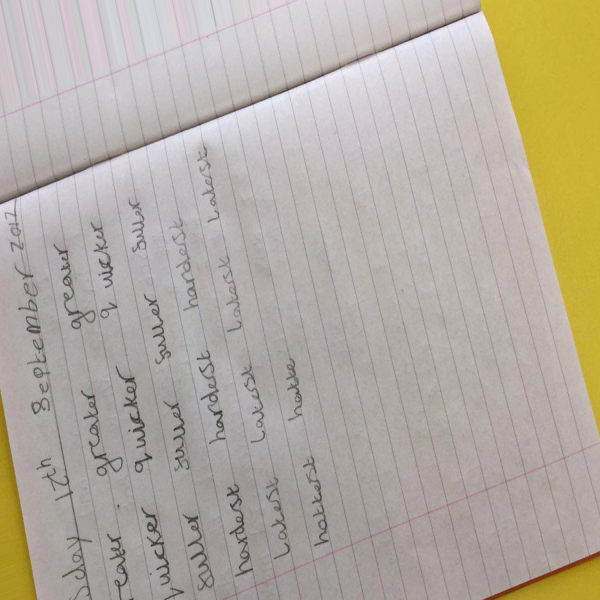 sday 12th September 2017
reater. greater greater
quicker quicker quicker
suller suller suller suller
hardest hardest hardest
Latest Latest Latest Latest
hattest hatte